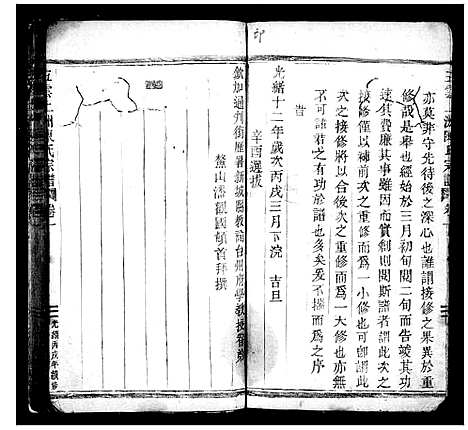 亦莫非守先待後之深心也誰謂接修之果異於重
修哉是舉也經始於三月初旬閱二旬而告竣其功
速其費廉其事雖因而實創則閱斯譜者謂此次之
接修僅以補前次之重修而爲一小修也可卽謂此
次之接修將以合後次之重修而爲一大修也亦無
不可諸君之有功於譜也多矣爰不揣而爲之序
昔
光緒十二年歲次丙戌三月下浣 吉旦
辛酉選拔
欽加通判銜歷署新城縣教諭台州府學教授
鰲山潘觀國頓首拜撰
五雲
洲陳氏宗譜
卷一
光緒丙戌年續修
印